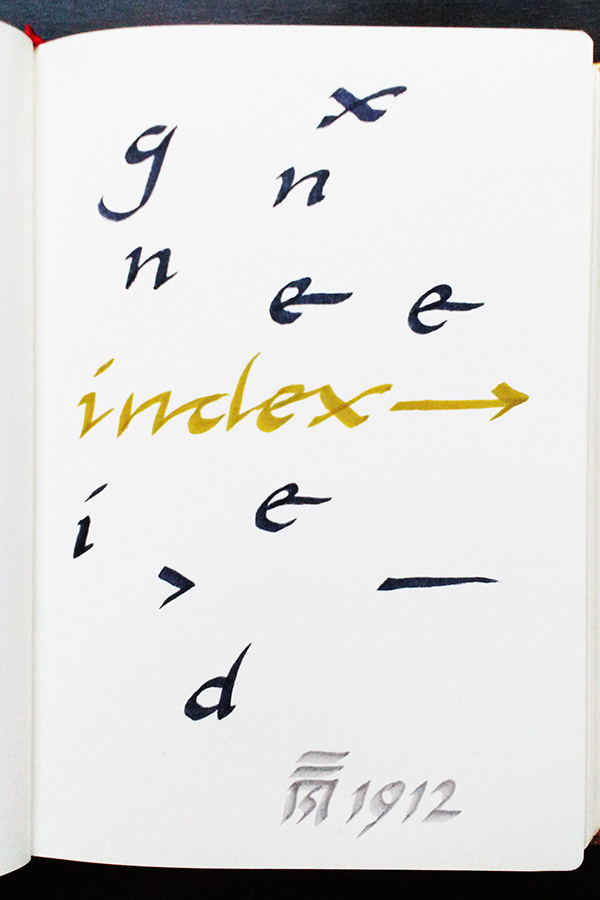 x
g n
n
e e
index→
i e
> —
d
1912